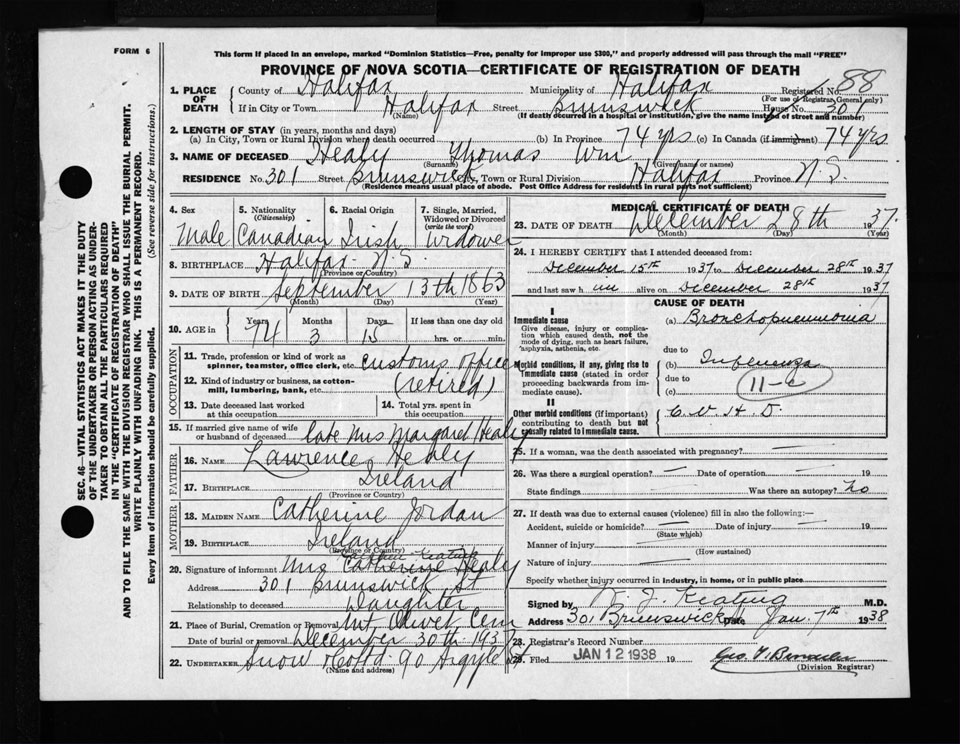 FORM 6
This form if placed in an envelope, marked "Dominion Statistics—Free, penalty for improper use $300," and properly addressed will pass through the mail "FREE"
PROVINCE OF NOVA SCOTIA—CERTIFICATE OF REGISTRATION OF DEATH
SEC. 46—VITAL STATISTICS ACT MAKES IT THE DUTY
OF THE UNDERTAKER OR PERSON ACTING AS UNDER-
TAKER TO OBTAIN ALL THE PARTICULARS REQUIRED
IN THE "CERTIFICATE OF REGISTRATION OF DEATH"
AND TO FILE THE SAME WITH THE DIVISION REGISTRAR WHO SHALL ISSUE THE BURIAL PERMIT.
WRITE PLAINLY WITH UNFADING INK. THIS IS A PERMANENT RECORD.
Every item of information should be carefully supplied. (See reverse side for instructions.)
1. PLACE OF DEATH County of Halifax Municipality of Halifax Registered No. 88
(For use of Registrar General only)
If in City or Town Halifax Street Brunswick House No. 301
(Name) (If death occurred in a hospital or institution, give the name instead of street and number)
2. LENGTH OF STAY (in years, months and days)
(a) In City, Town or Rural Division where death occurred (b) In Province 74 yrs (c) In Canada (if immigrant) 74 yrs
3. NAME OF DECEASED Healy Thomas Wm
(Surname) (Given name or names)
RESIDENCE No. 301 Street Brunswick City, Town or Rural Division Halifax Province N.S.
(Residence means usual place of abode. Post Office Address for residents in rural parts not sufficient)
4. Sex 5. Nationality (Citizenship) 6. Racial Origin 7. Single, Married, Widowed or Divorced (write the word)
Male Canadian Irish Widower
8. BIRTHPLACE Halifax N.S.
(Province or Country)
9. DATE OF BIRTH September 13th 1863
(Month) (Day) (Year)
10. AGE in Years Months Days If less than one day old
74 3 15 hrs. or min.
OCCUPATION
11. Trade, profession or kind of work as spinner, teamster, office clerk, etc. Customs Office
12. Kind of industry or business, as cotton-mill, lumbering, bank, etc. (retired)
13. Date deceased last worked at this occupation 14. Total yrs. spent in this occupation
15. If married give name of wife or husband of deceased Late Mrs Margaret Healy
FATHER
16. NAME Lawrence Healy
17. BIRTHPLACE Ireland
(Province or Country)
MOTHER
18. MAIDEN NAME Catherine Jordan
19. BIRTHPLACE Ireland
(Province or Country)
Keating
20. Signature of informant Mrs Catherine Healy
Address 301 Brunswick St
Relationship to deceased Daughter
21. Place of Burial, Cremation or Removal Mt Olivet Cem
Date of burial or removal December 30th 1937
22. UNDERTAKER Snow & Co Ltd 90 Argyle St
(Name and address)
MEDICAL CERTIFICATE OF DEATH
23. DATE OF DEATH December 28th 1937.
(Month) (Day) (Year)
24. I HEREBY CERTIFY that I attended deceased from:
December 15th 1937 to December 28th 1937
and last saw him alive on December 28th 1937
CAUSE OF DEATH
I
Immediate cause (a) Bronchopneumonia
Give disease, injury or complication which caused death, not the mode of dying, such as heart failure, asphyxia, asthenia, etc.
due to
Morbid conditions, if any, giving rise to immediate cause (stated in order proceeding backwards from immediate cause). (b) Influenza
due to 11-a
(c)
II
Other morbid conditions (if important) contributing to death but not causally related to immediate cause. C.V.H.D.
25. If a woman, was the death associated with pregnancy?
26. Was there a surgical operation? Date of operation 19
State findings Was there an autopsy? No
27. If death was due to external causes (violence) fill in also the following:—
Accident, suicide or homicide? Date of injury 19
(State which)
Manner of injury
(How sustained)
Nature of injury
Specify whether injury occurred in industry, in home, or in public place
Signed by W. J. Keating M.D.
Address 301 Brunswick Date Jan. 7th 1938
28. Registrar's Record Number
29. Filed JAN 12 1938 19
(Division Registrar)